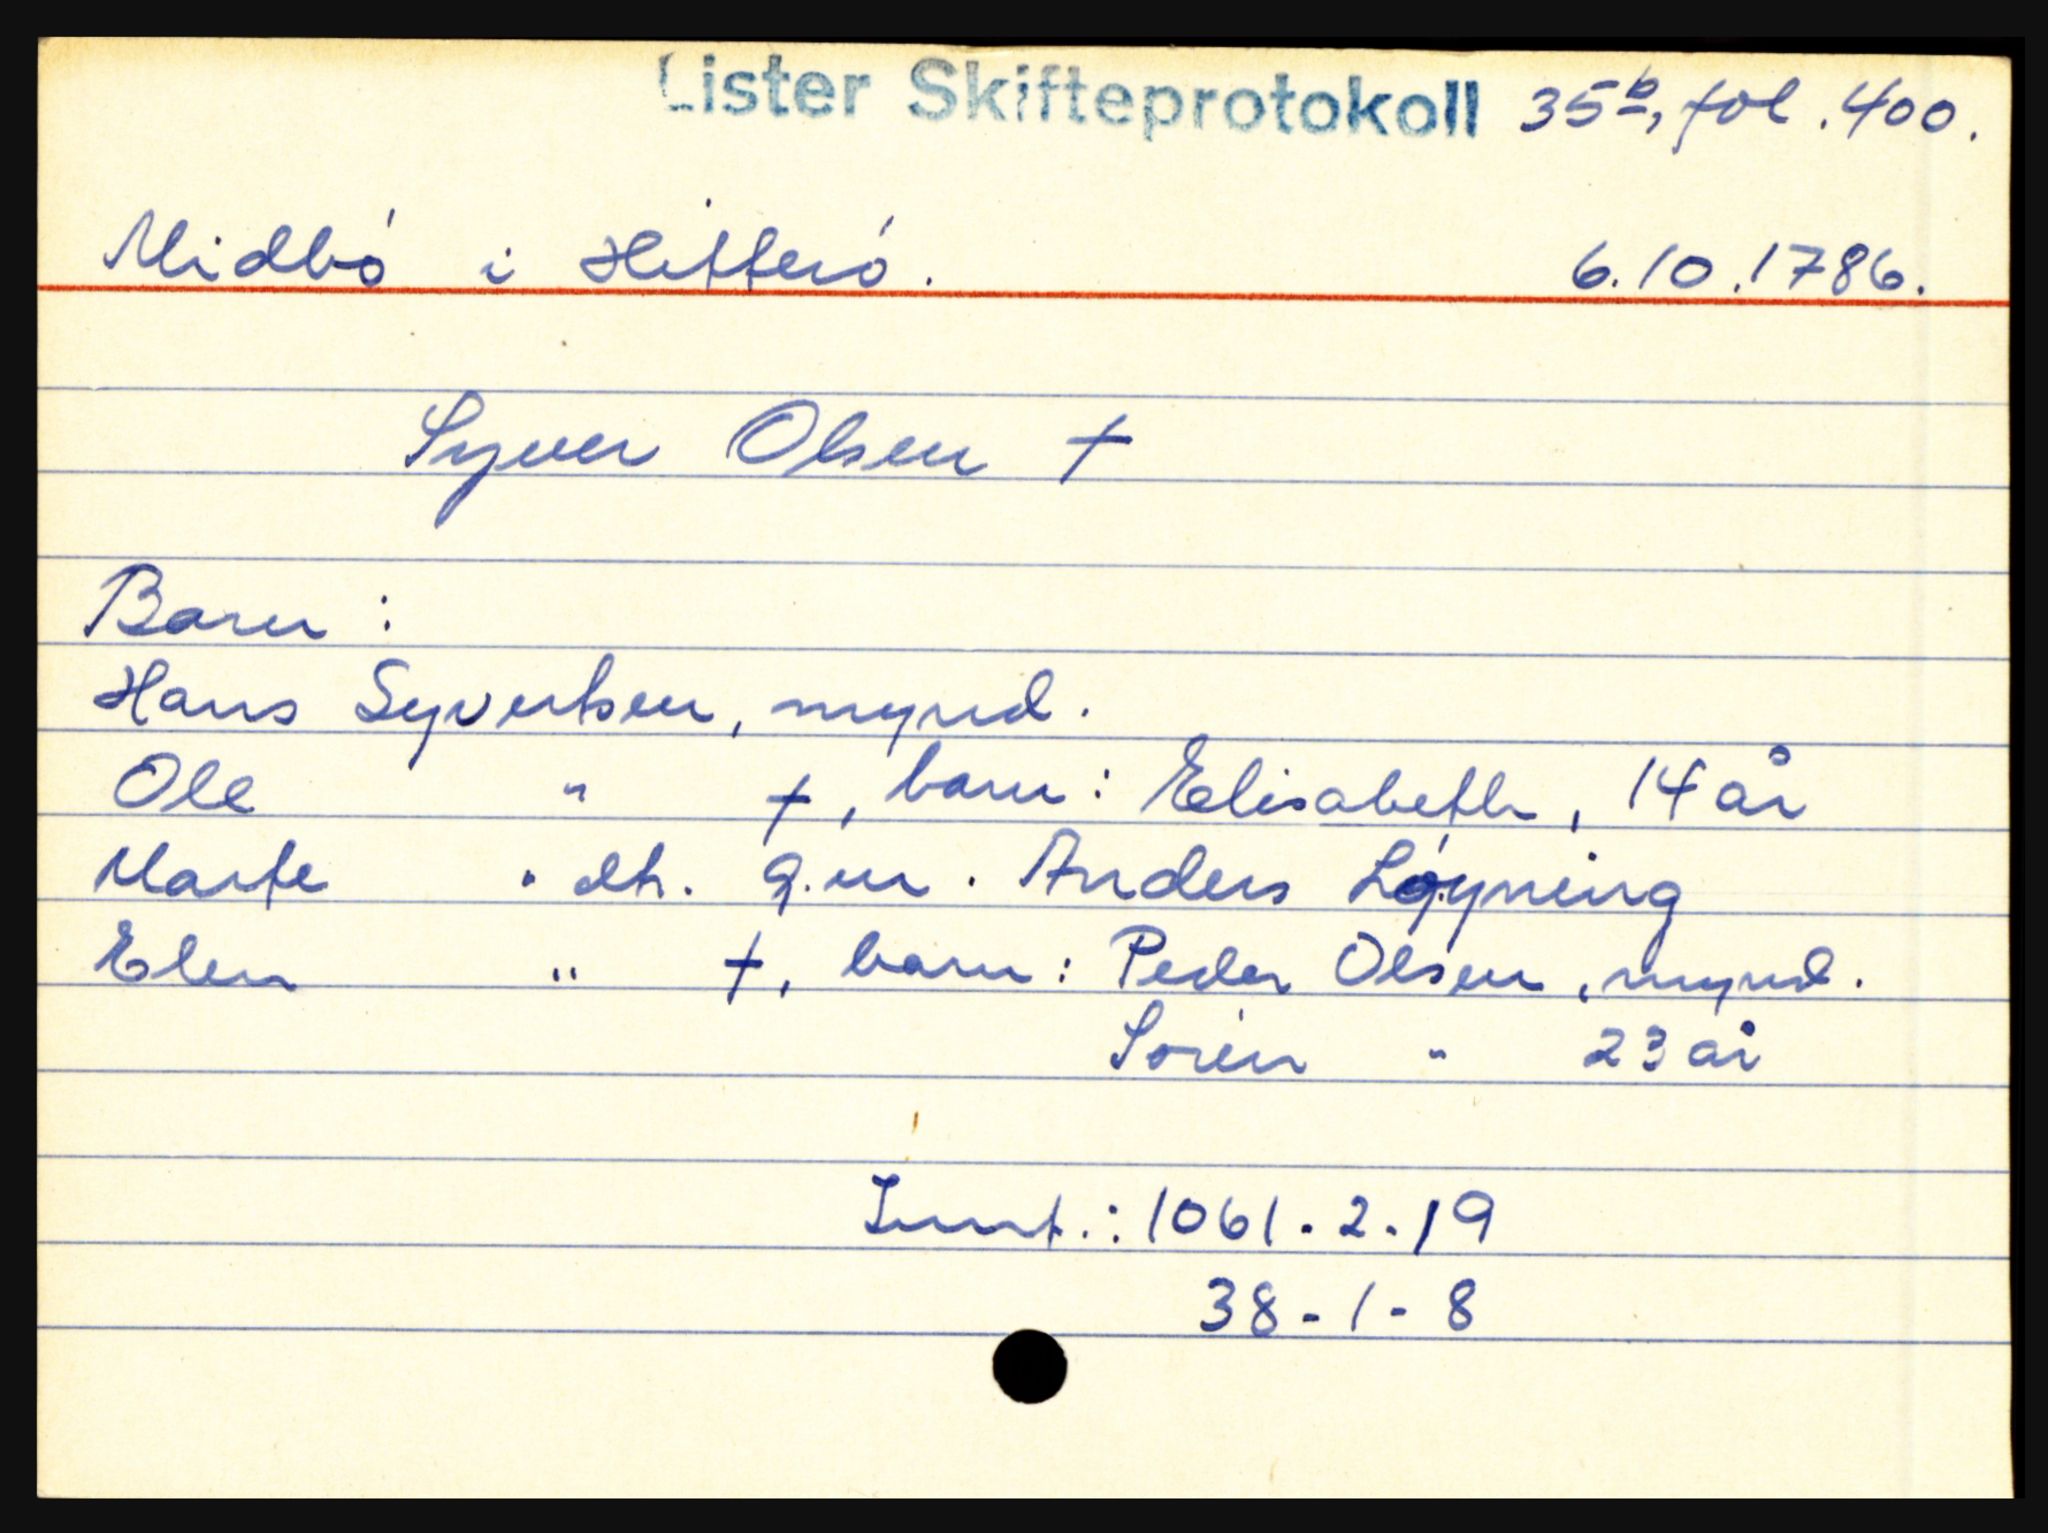 Lister Skifteprotokoll 35b, fol. 400.
Midbó i Hitteró. 6.10.1786.
Syver Olsen †
Barn:
Hans Syvertsen, mynd.
Ole " †, barn: Elisabeth, 14 år
Marte " dtr. g.m. Anders Løyning
Elen " †, barn: Peder Olsen, mynd.
Sören " 23 år
Innt.: 1061-2-19
38-1-8